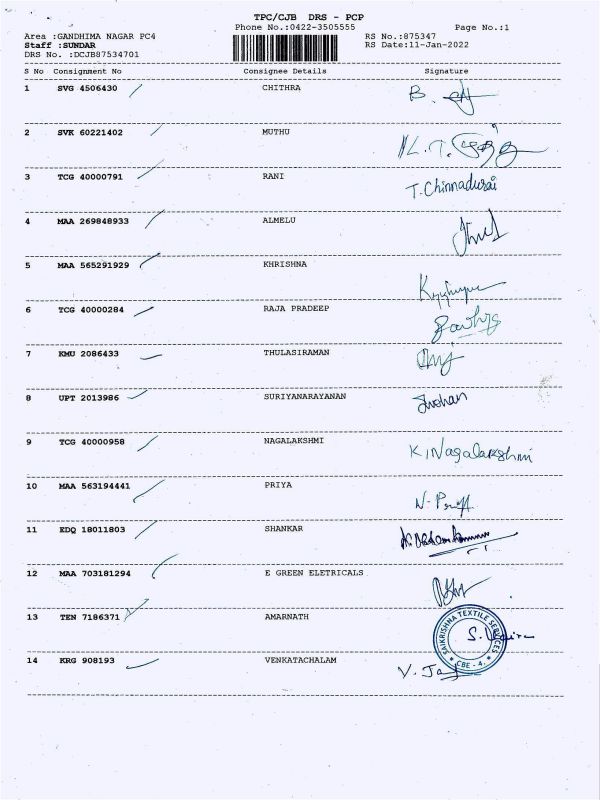 TPC/CJB DRS - PCP
Phone No.:0422-3505555 Page No.:1
Area :GANDHIMA NAGAR PC4 RS No.:875347
Staff :SUNDAR RS Date:11-Jan-2022
DRS No. :DCJB87534701
S No Consignment No Consignee Details Signature
1 SVG 4506430 CHITHRA B.
2 SVK 60221402 MUTHU
3 TCG 40000791 RANI T. Chinnadurai
4 MAA 269848933 ALMELU
5 MAA 565291929 KHRISHNA
6 TCG 40000284 RAJA PRADEEP
7 KMU 2086433 THULASIRAMAN
8 UPT 2013986 SURIYANARAYANAN
9 TCG 40000958 NAGALAKSHMI K. Nagalakshmi
10 MAA 563194441 PRIYA
11 EDQ 18011803 SHANKAR
12 MAA 703181294 E GREEN ELETRICALS
13 TEN 7186371 AMARNATH SAIKRISHNA TEXTILE SERVICES
* CBE - 4. *
14 KRG 908193 VENKATACHALAM